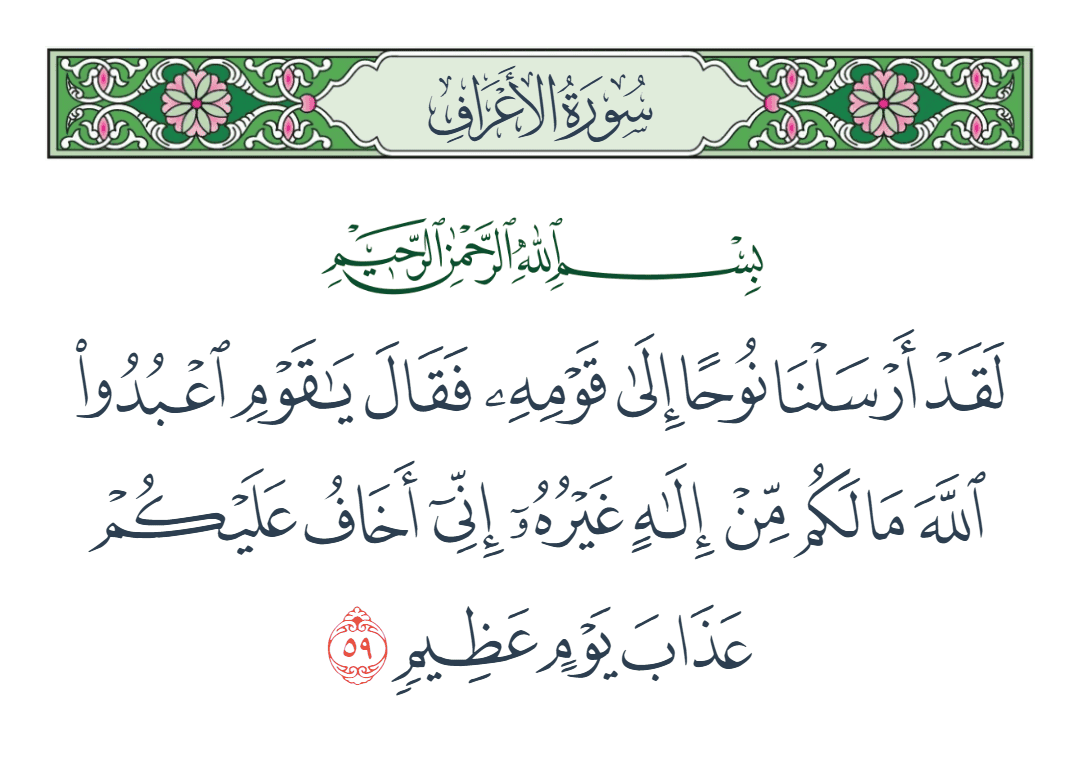 سُورَةُ الأَعْرَافِ
بِسْمِ ٱللَّهِ ٱلرَّحْمَٰنِ ٱلرَّحِيمِ
لَقَدْ أَرْسَلْنَا نُوحًا إِلَىٰ قَوْمِهِۦ فَقَالَ يَـٰقَوْمِ ٱعْبُدُوا۟
ٱللَّهَ مَا لَكُم مِّنْ إِلَـٰهٍ غَيْرُهُۥٓ إِنِّىٓ أَخَافُ عَلَيْكُمْ
عَذَابَ يَوْمٍ عَظِيمٍ ٥٩